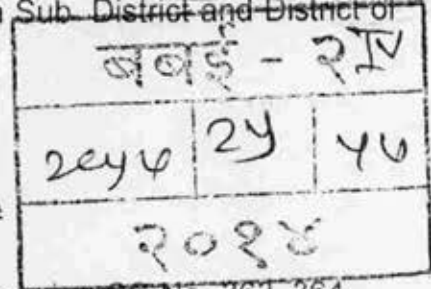 Sub. District and District of
बबई - २IV
२५ ५७
२०१४